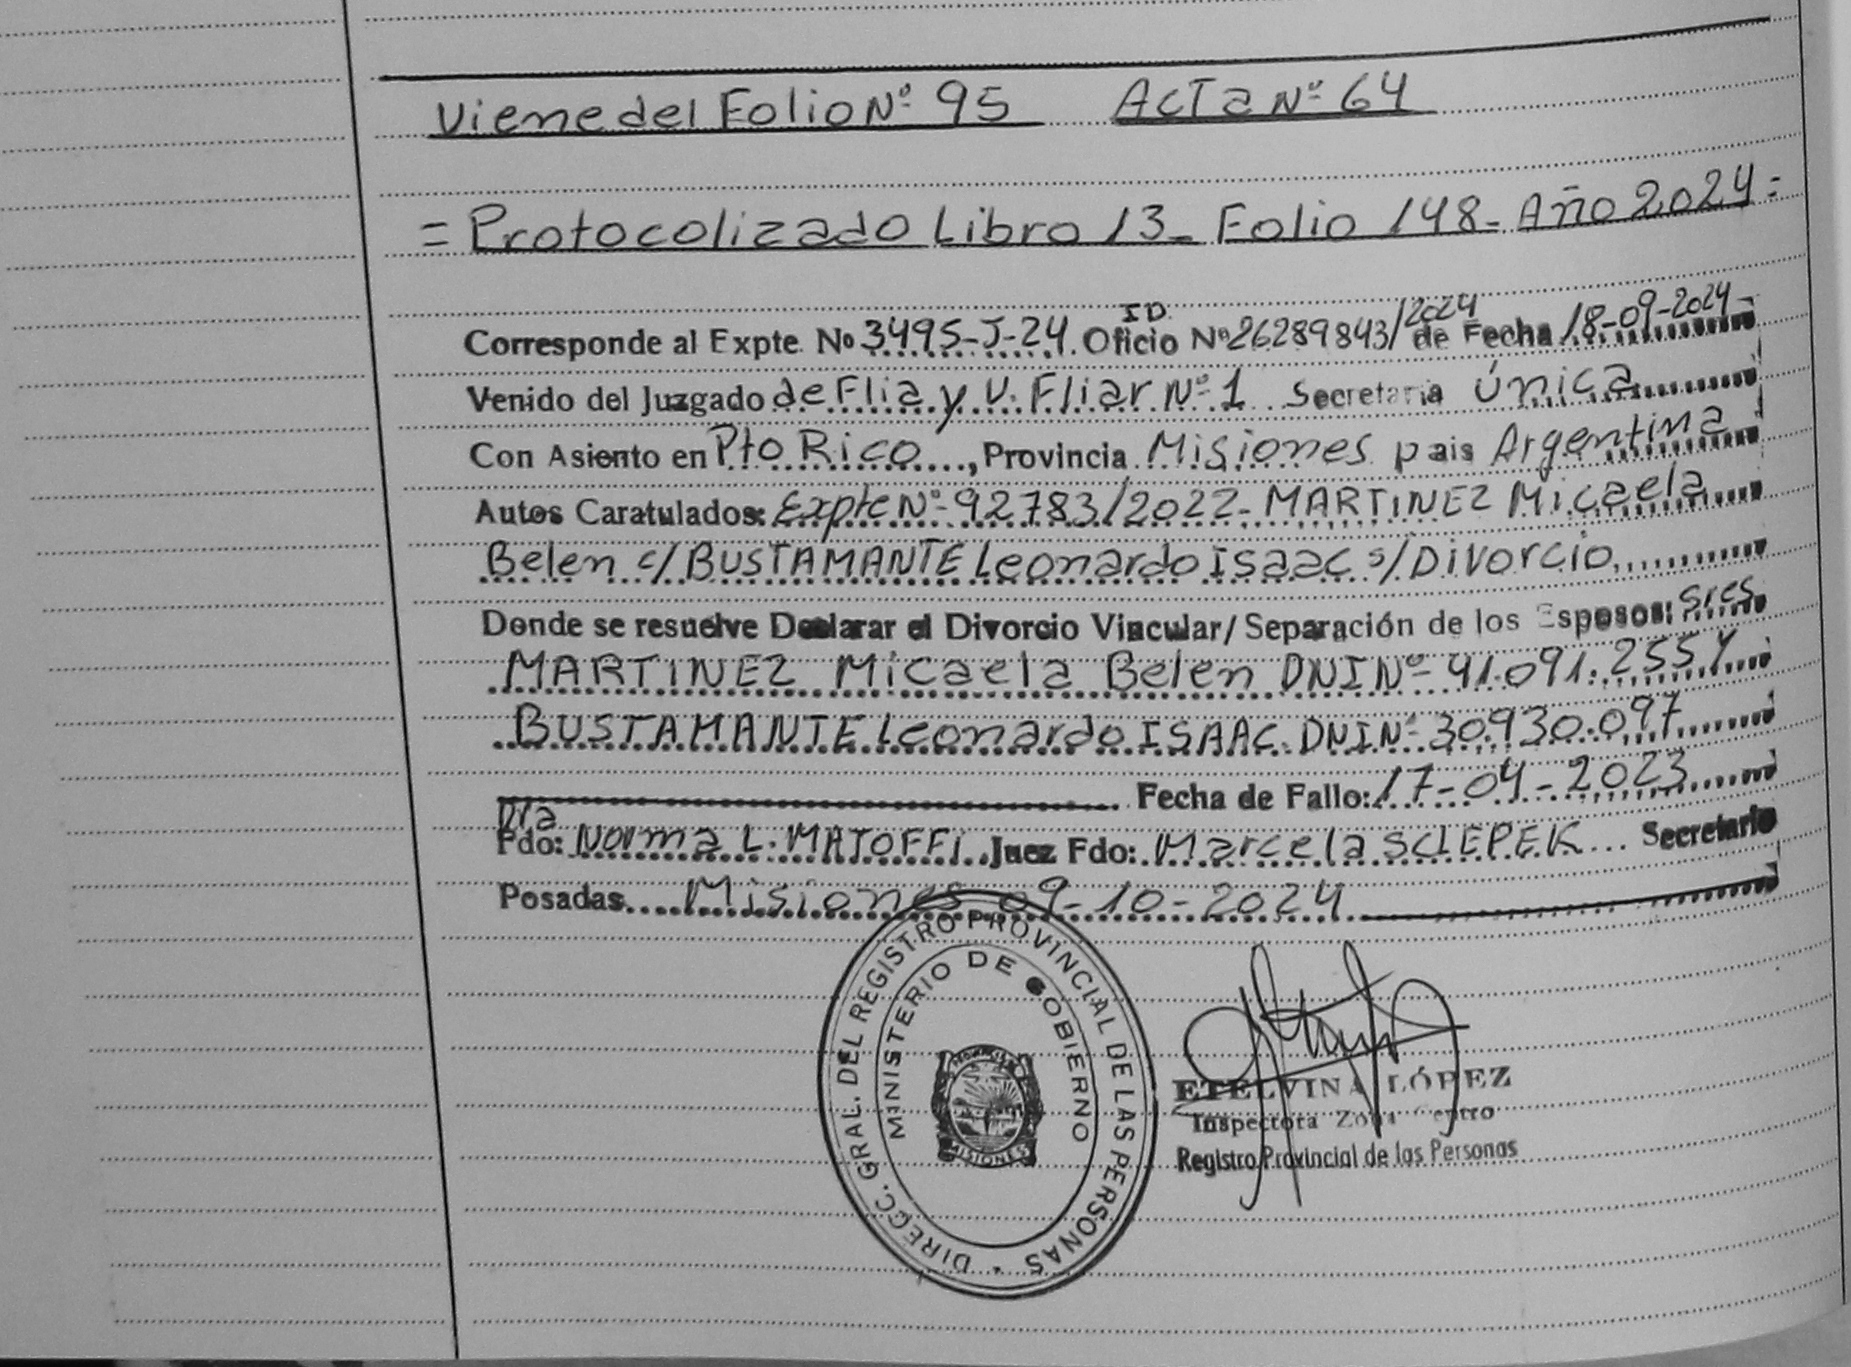 Viene del Folio Nº 95 Acta Nº 64
= Protocolizado Libro 13_ Folio 148_ Año 2024=
Corresponde al Expte. Nº 3495-J-24. ID. Oficio Nº 26289843/2024 de Fecha 18-09-2024-
Venido del Juzgado de Flia y V. Fliar Nº 1 Secretaria Única
Con Asiento en Pto Rico, Provincia Misiones pais Argentina
Autos Caratulados: Expte Nº 92783/2022- MARTINEZ Micaela
Belen c/ BUSTAMANTE Leonardo Isaac s/ Divorcio
Donde se resuelve Declarar el Divorcio Vincular/Separación de los Esposos: Sres
MARTINEZ Micaela Belen DNI Nº 41.091.255 Y
BUSTAMANTE Leonardo ISAAC. DNI Nº 30.930.097
Fecha de Fallo: 17-04-2023
Dra
Fdo: Norma L. MATOFFI Juez Fdo: Marcela SCLEPEK Secretario
Posadas Misiones 09-10-2024
DIRECC. GRAL. DEL REGISTRO PROVINCIAL DE LAS PERSONAS
MINISTERIO DE GOBIERNO
MISIONES
ETELVINA LÓPEZ
Inspectora Zona Centro
Registro Provincial de las Personas